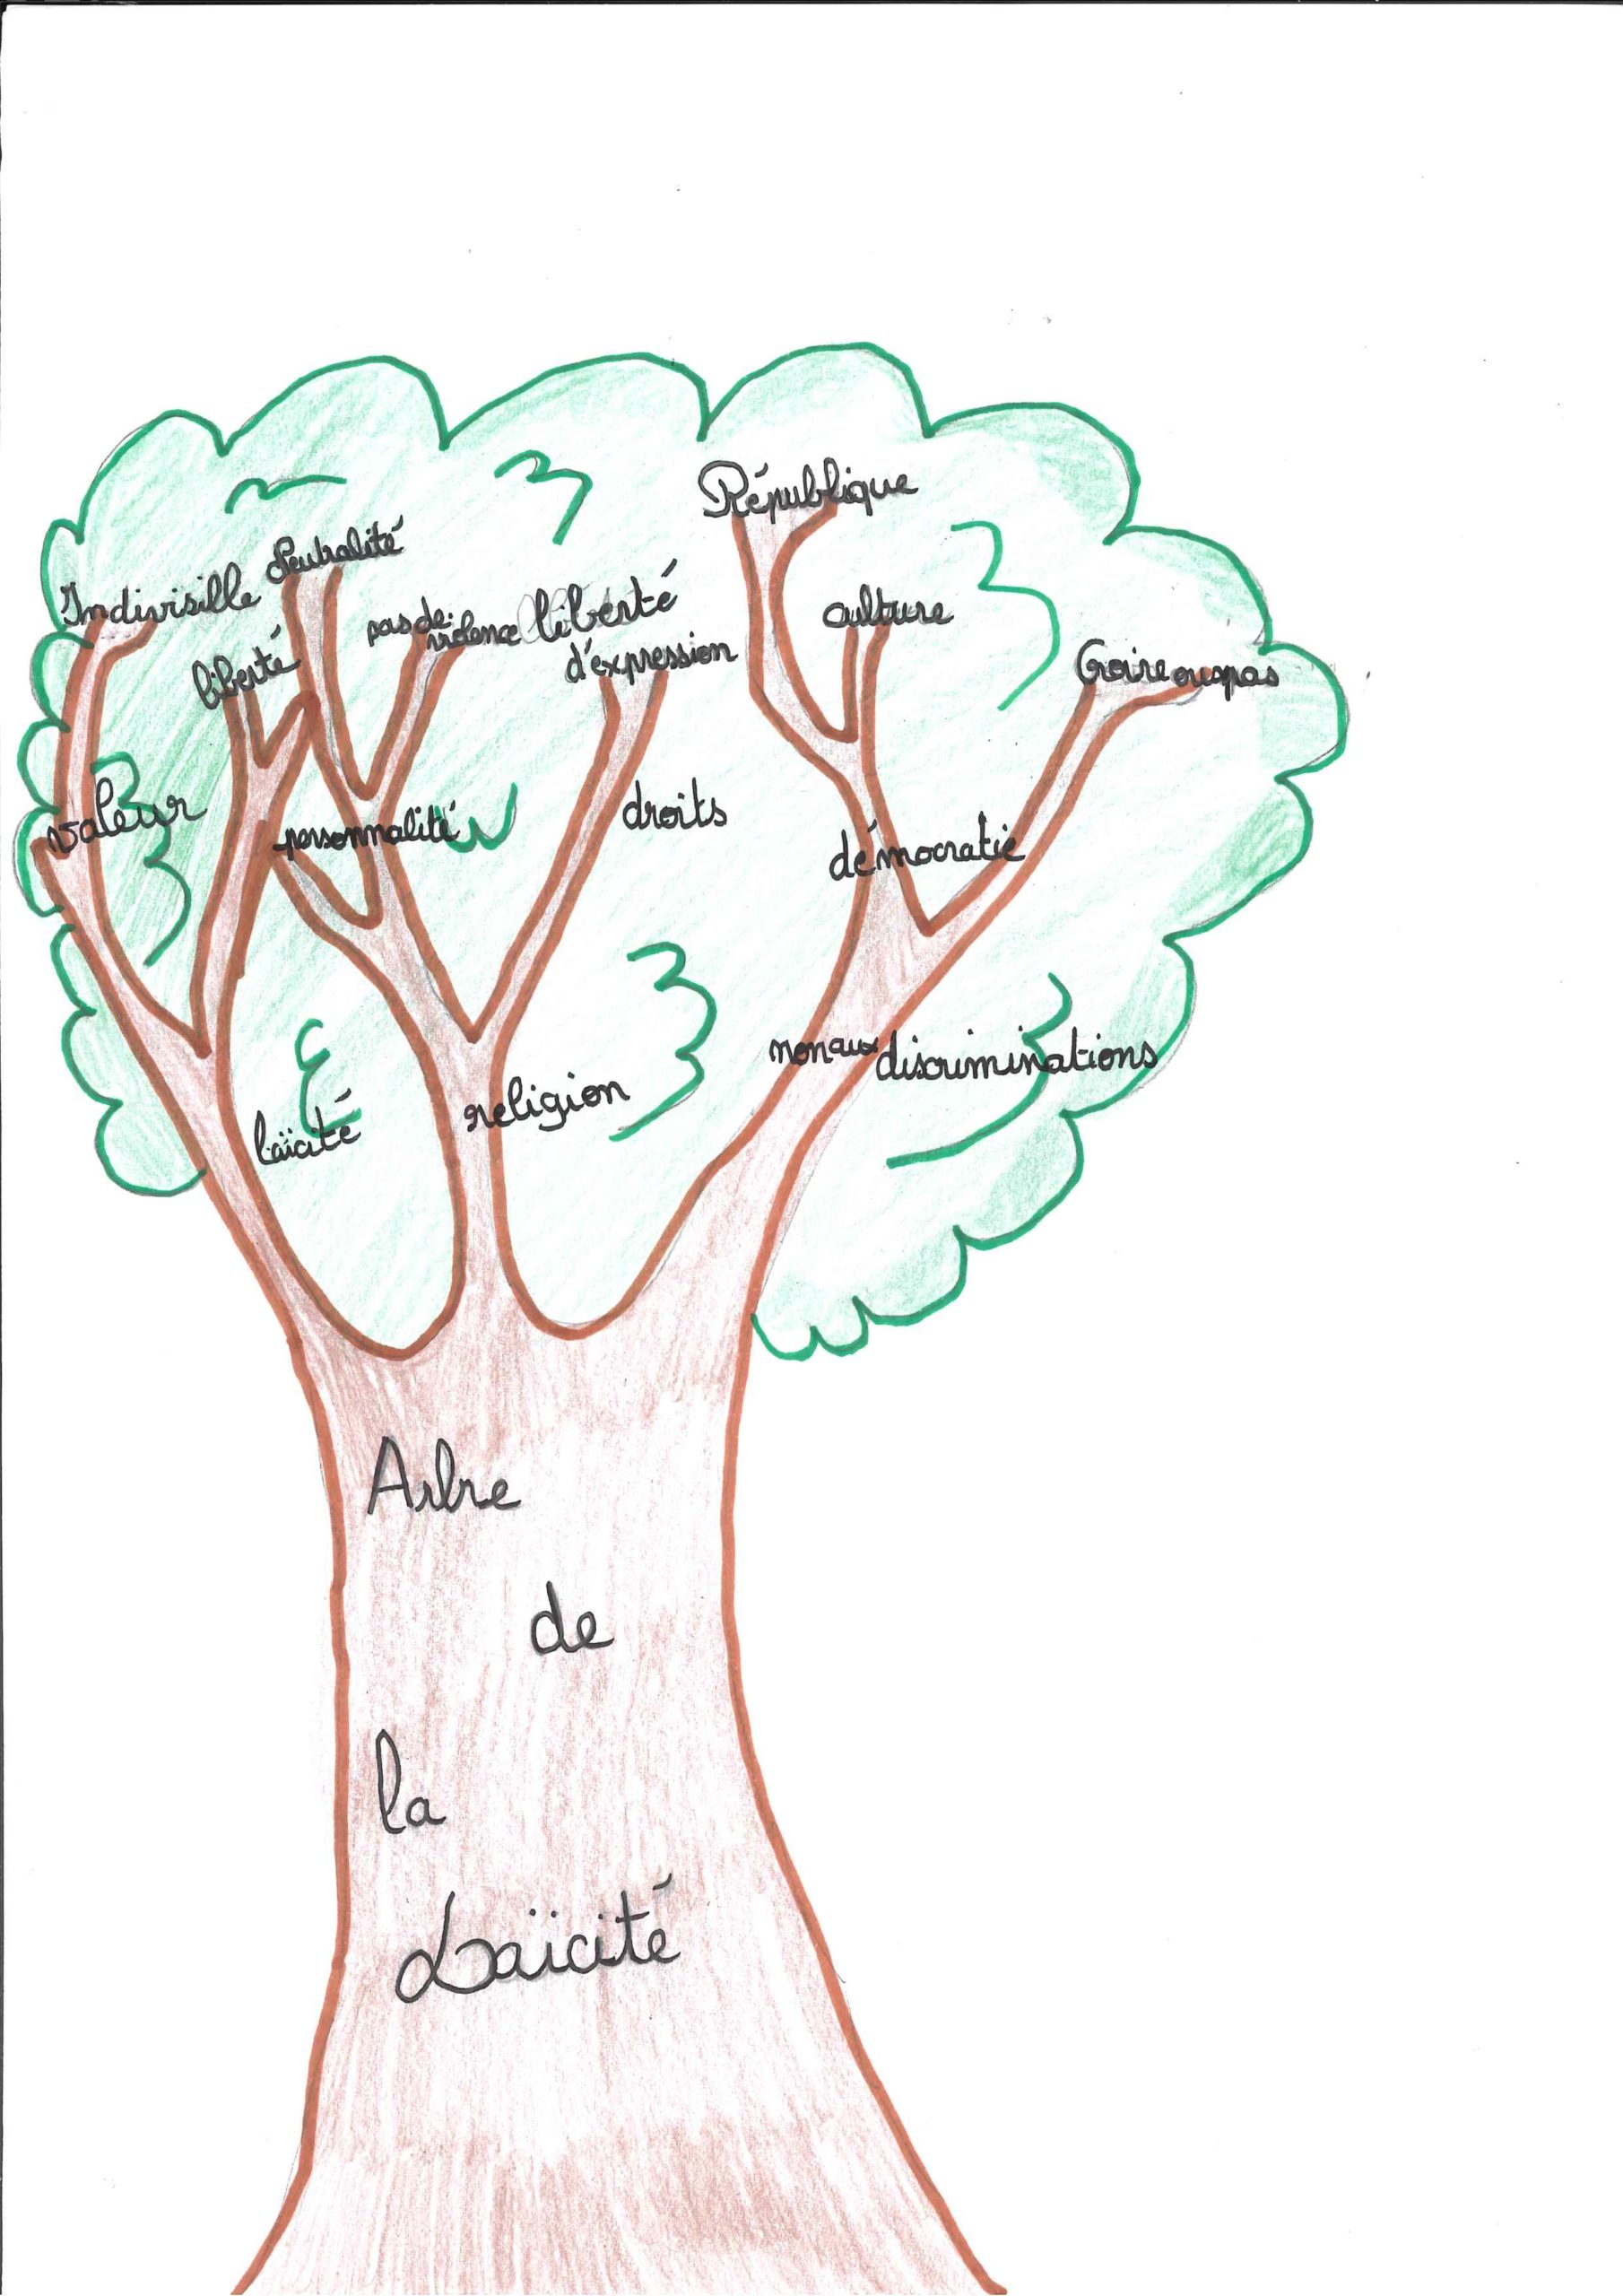 République
Neutralité
Indivisible
pas de
violence
liberté
d'expression
culture
liberté
Croire ou pas
valeur
personnalité
droits
démocratie
non aux discriminations
religion
laïcité
Arbre
de
la
Laïcité